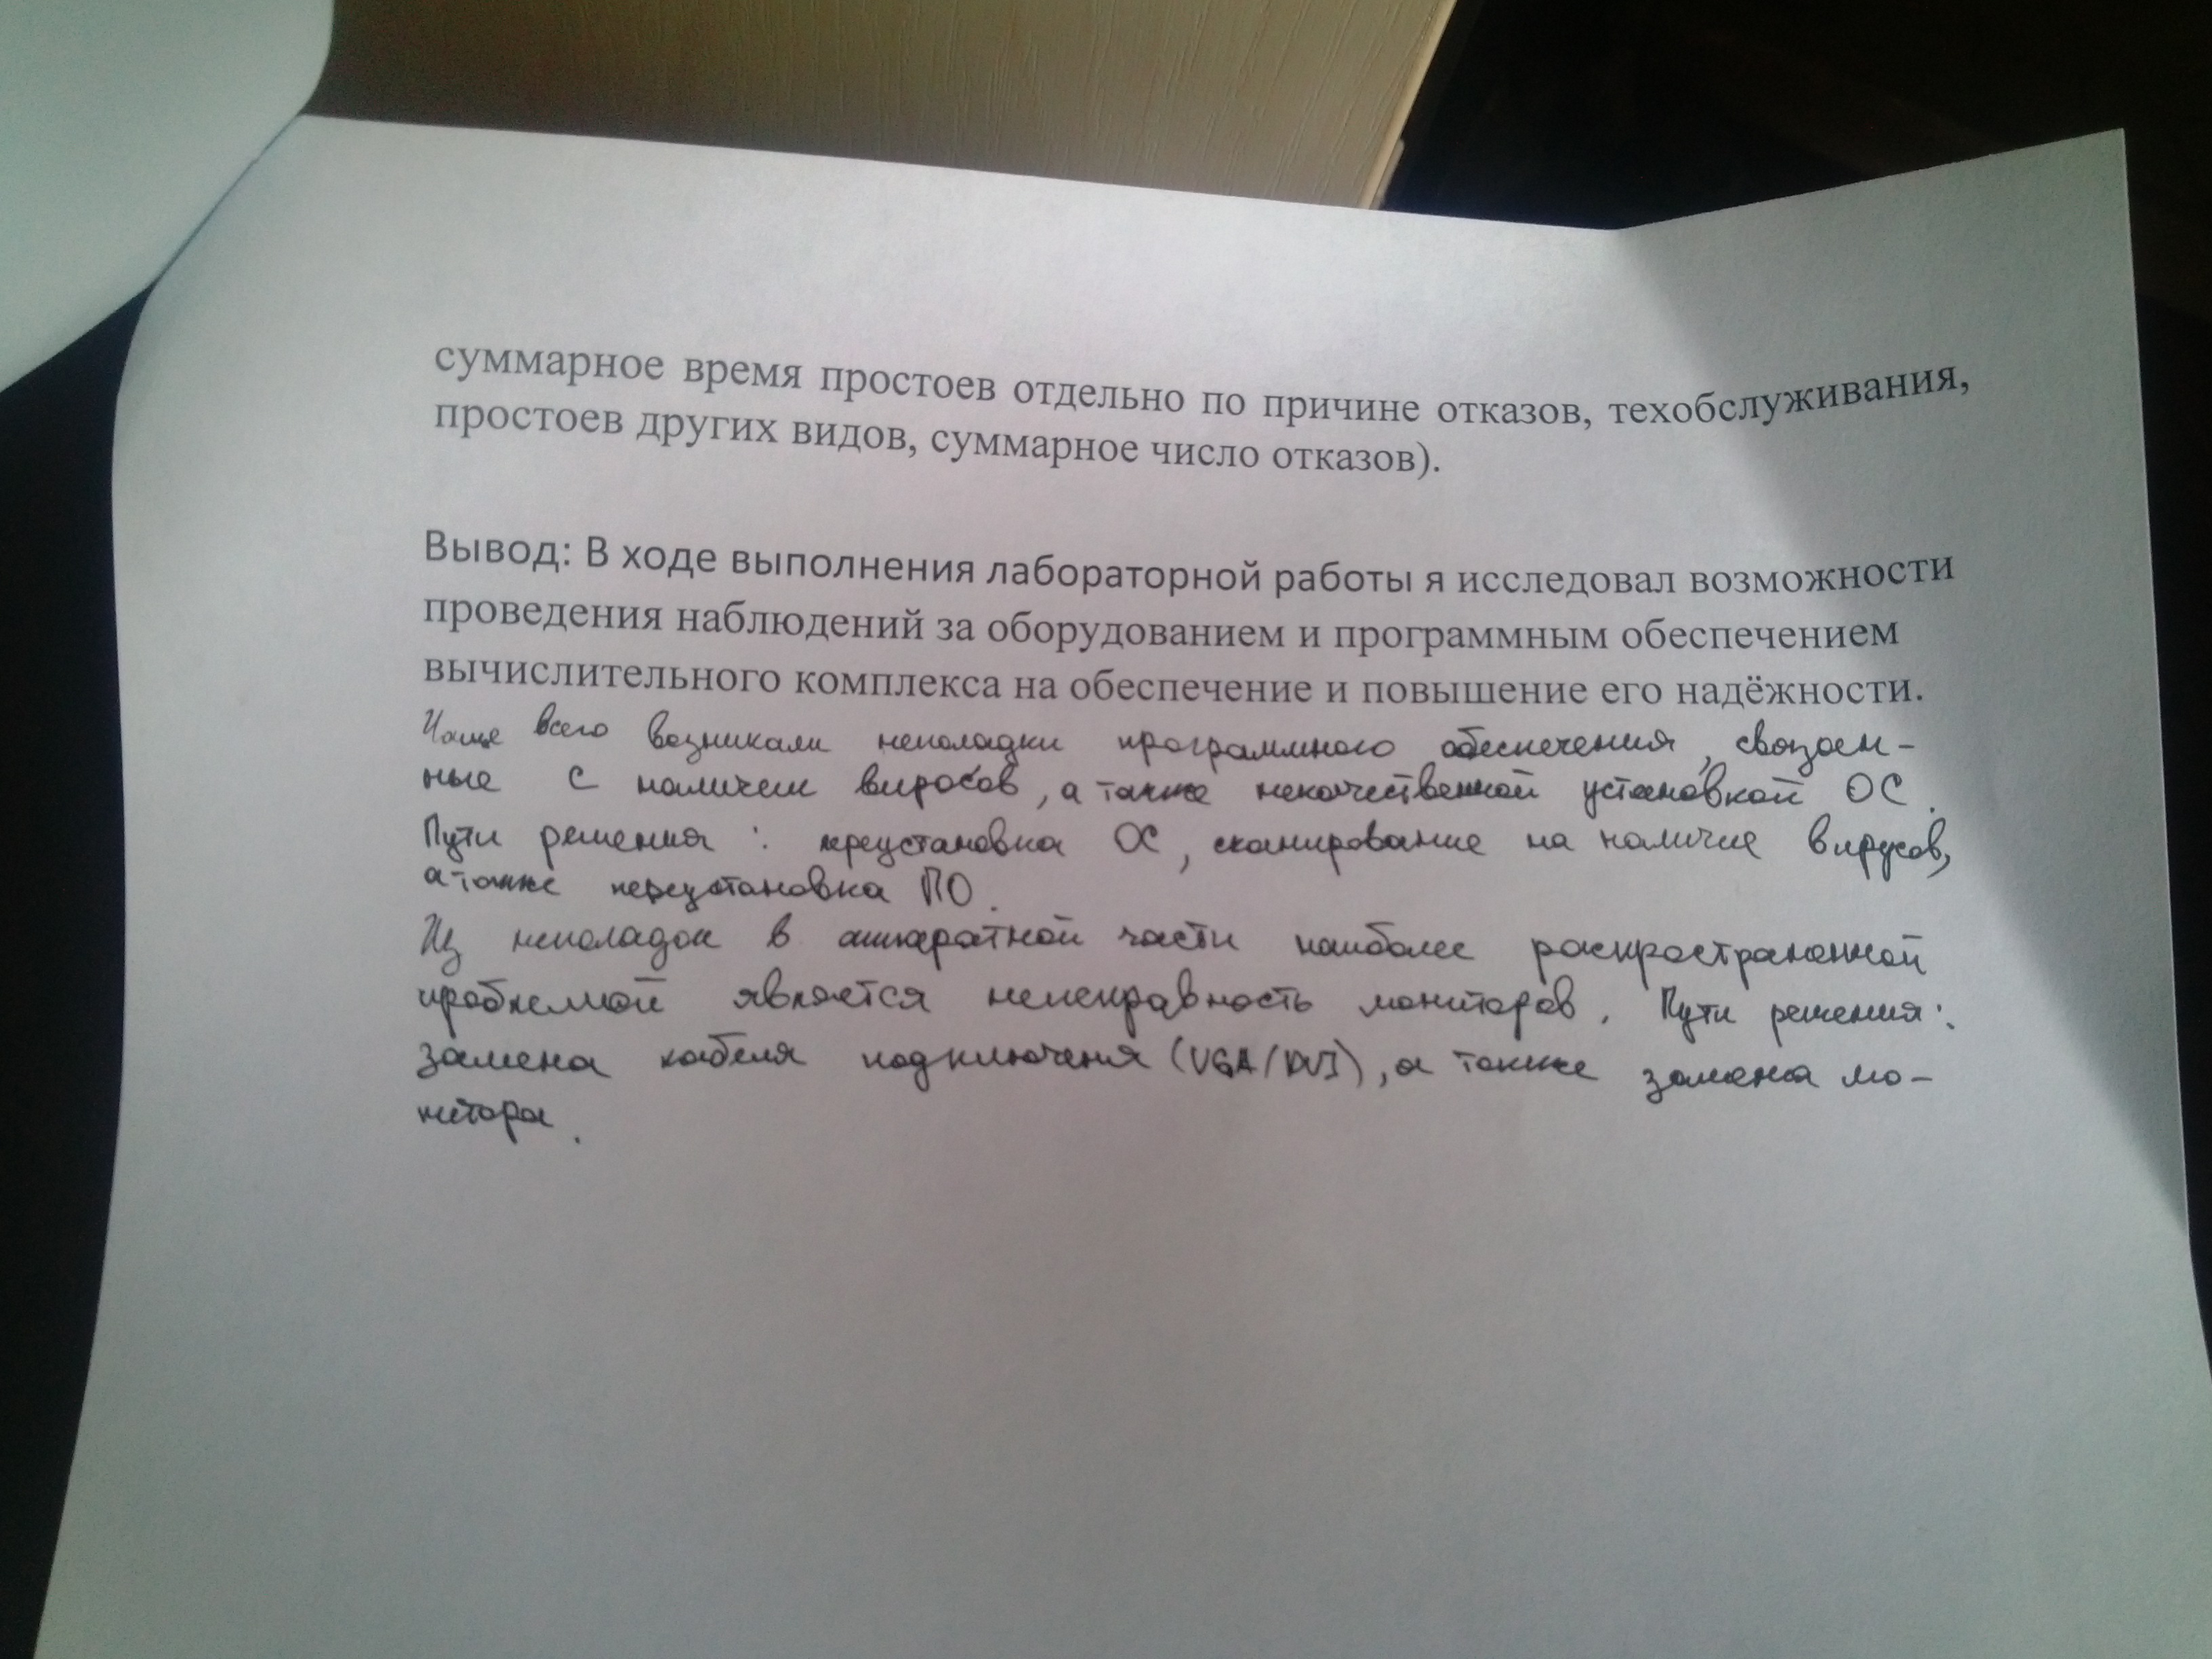 суммарное время простоев отдельно по причине отказов, техобслуживания,
простоев других видов, суммарное число отказов).
Вывод: В ходе выполнения лабораторной работы я исследовал возможности
проведения наблюдений за оборудованием и программным обеспечением
вычислительного комплекса на обеспечение и повышение его надёжности.
Чаще всего возникали неполадки программного обеспечения, связан-
ные с наличем вирусов, а также некачественной установкой ОС.
Пути решения: переустановка ОС, сканирование на наличие вирусов,
а также переустановка ПО.
Из неполадок в аппаратной части наиболее распространенной
проблемой является неисправность мониторов. Пути решения:
замена кабеля подключеня (VGA/DVI), а также замена мо-
нитора.